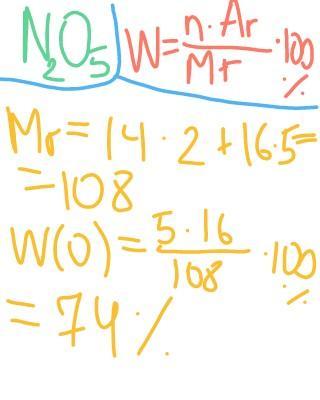 N₂O₅ W = n · Ar / Mr · 100 %
Mr = 14 · 2 + 16.5 =
= 108
W(O) = 5 · 16 / 108 · 100 %
= 74 %